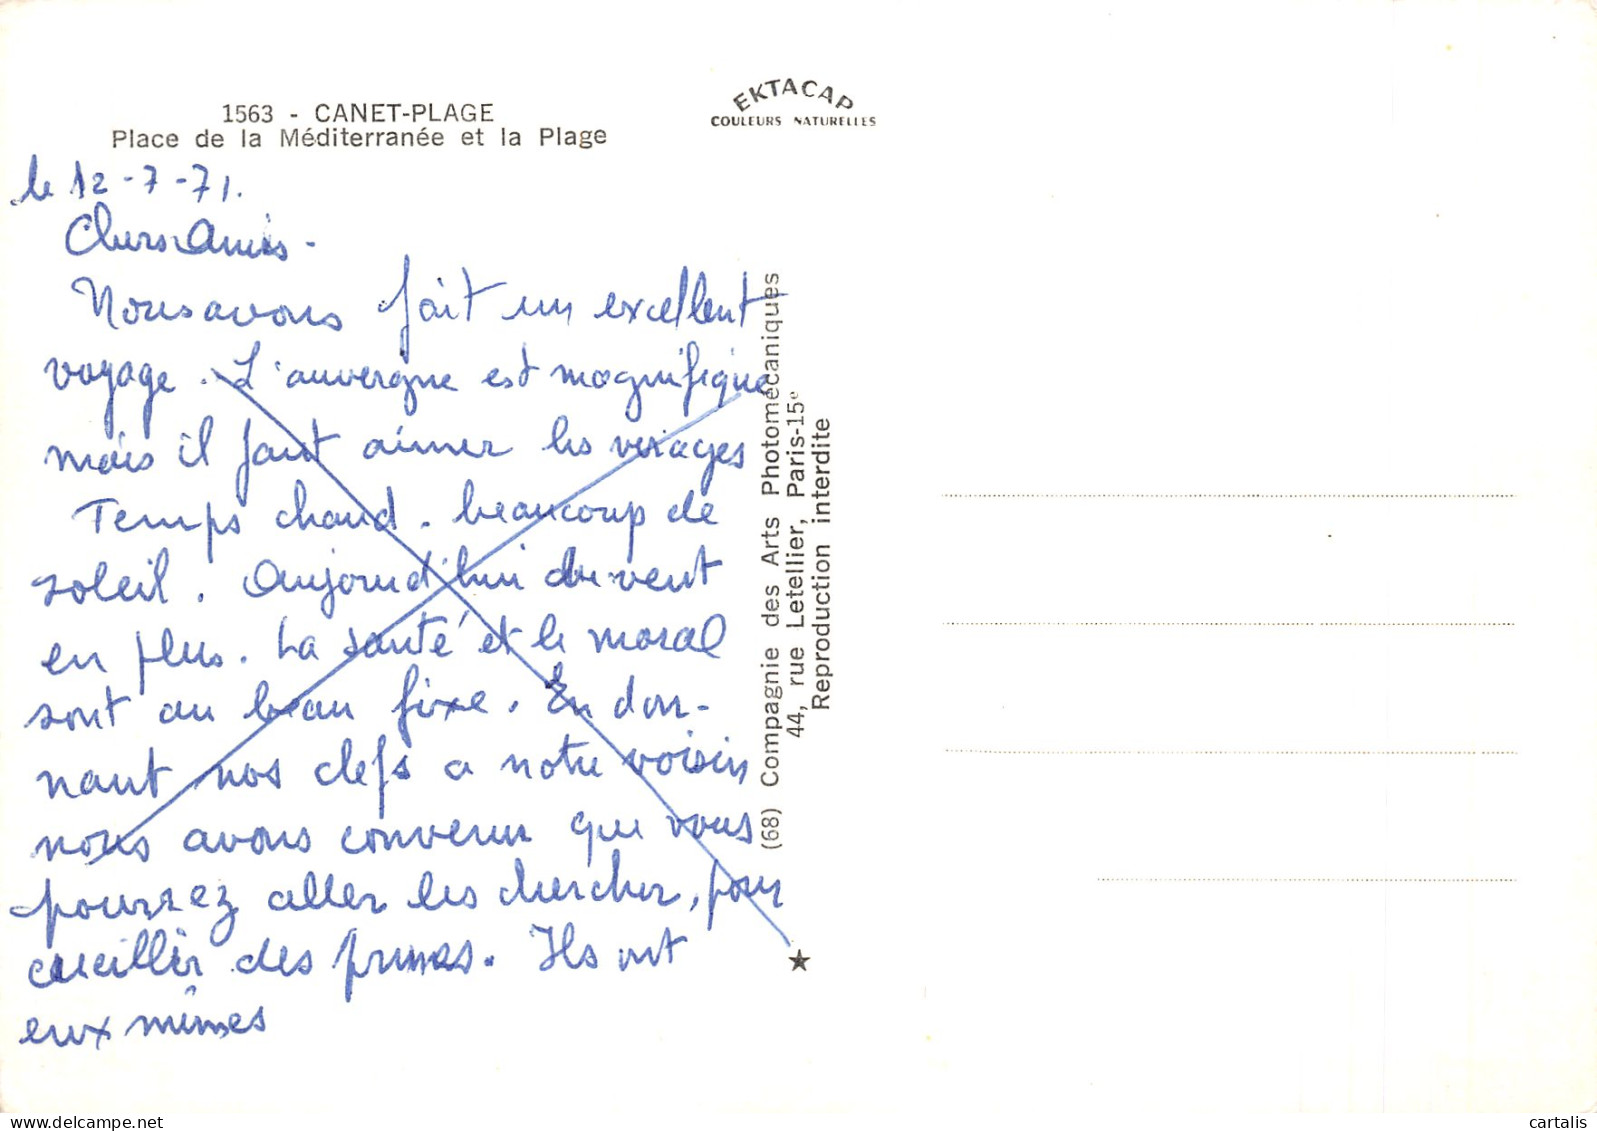 1563 - CANET-PLAGE
Place de la Méditerranée et la Plage
EKTACAP
COULEURS NATURELLES
le 12-7-71.
Chers Amis -
Nous avons fait un excellent
voyage. L'auvergne est magnifique
mais il faut aimer les virages
Temps chaud. beaucoup de
soleil. Aujourd'hui du vent
en plus. La santé et le moral
sont au beau fixe. En don-
nant nos clefs a notre voisin
nous avons convenu que vous
pourrez aller les chercher, pour
cueillir des prunes. Ils ont
eux mêmes
(68) Compagnie des Arts Photomécaniques
44, rue Letellier, Paris-15e
Reproduction interdite
cartalis